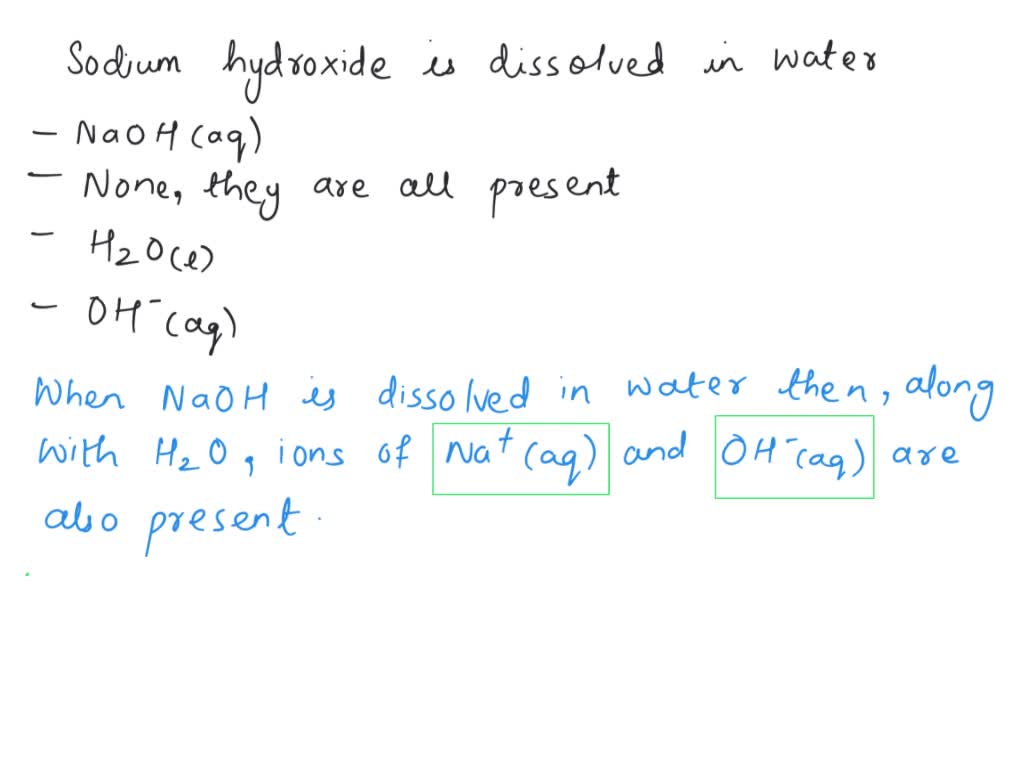 Sodium hydroxide is dissolved in water
- NaOH(aq)
- None, they are all present
- H2O(l)
- OH⁻(aq)
When NaOH is dissolved in water then, along
with H2O, ions of Na⁺(aq) and OH⁻(aq) are
also present.